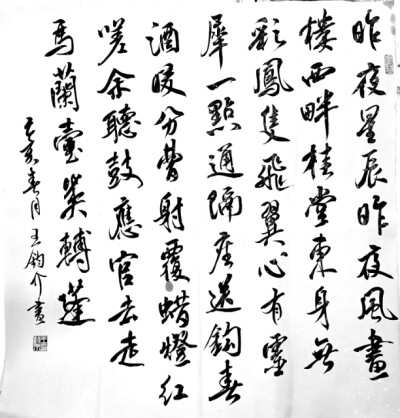 昨夜星辰昨夜風畫
樓西畔桂堂東身無
彩鳳隻飛翼心有靈
犀一點通隔座送鈎春
酒暖分曹射覆蜡燈紅
嗟余聽鼓應官去走
馬蘭臺類轉蓬
亥春月王鈞介書